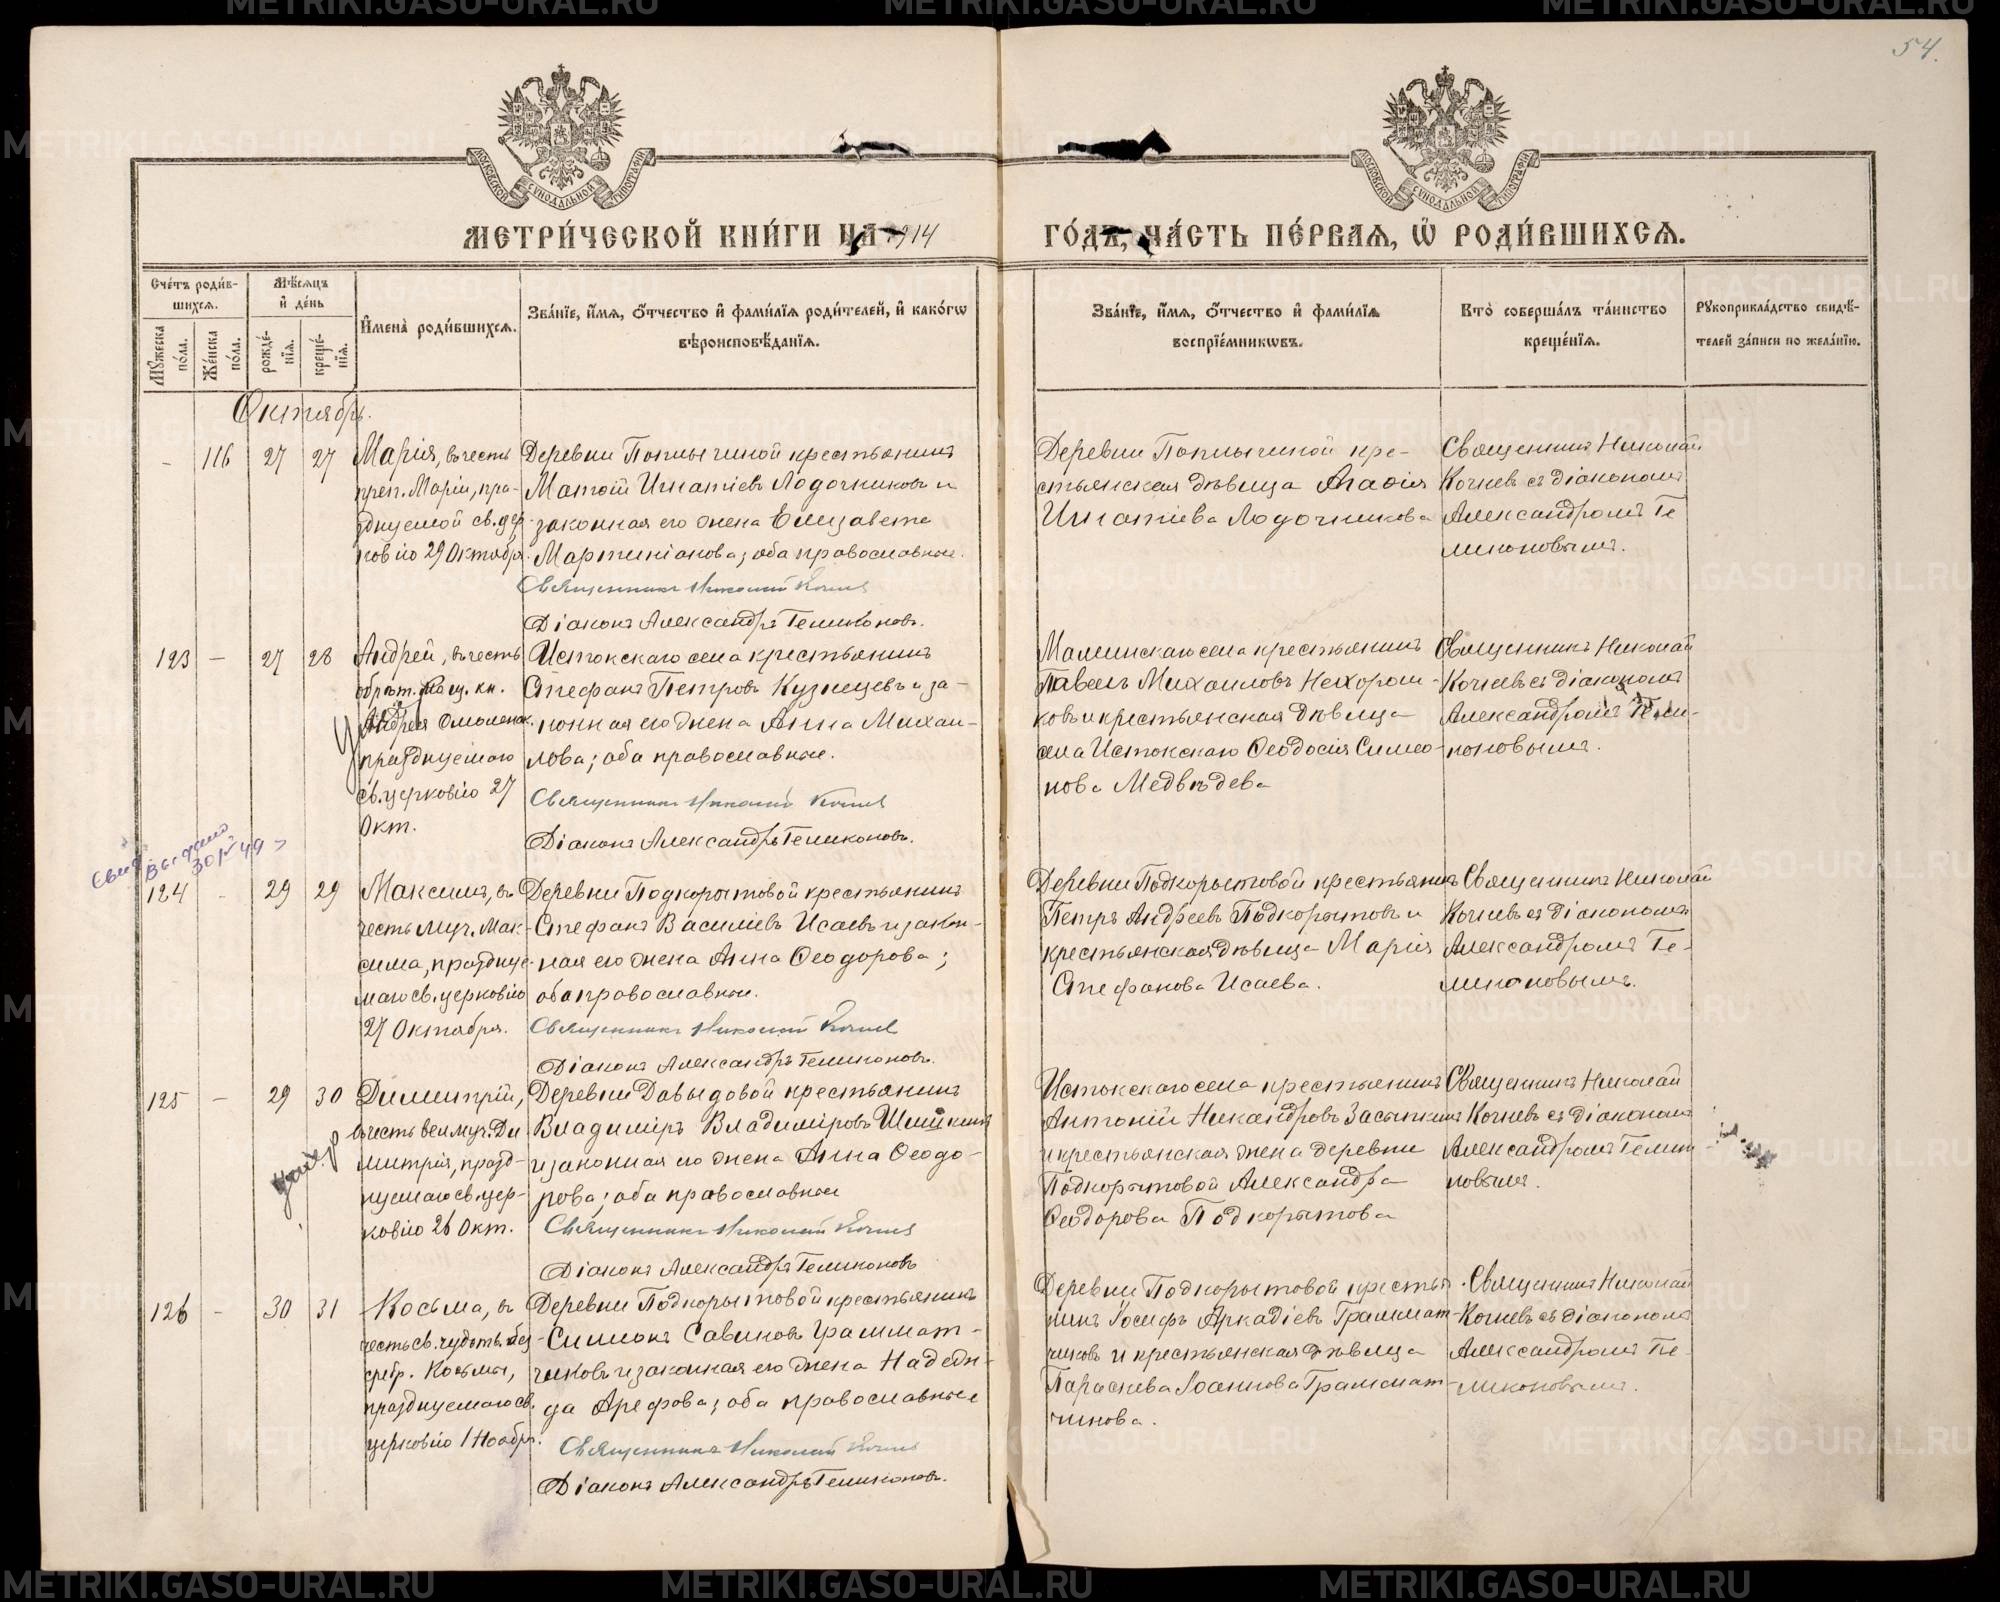 54.
МОСКОВСКОЙ СѴНОДАЛЬНОЙ ТИПОГРАФІИ
МОСКОВСКОЙ СѴНОДАЛЬНОЙ ТИПОГРАФІИ
МЕТРИ́ЧЕСКОЙ КНИ́ГИ НА 1914
ГО́ДЪ, ЧА́СТЬ ПЕ́РВАЯ, Ѡ РОДИ́ВШИХСЯ.
Сче́тъ роди́в-
шихся.
Мꙋ́жеска по́ла.
Же́нска по́ла.
Мѣ́сяцъ
и҆ де́нь
рожде́нїя.
креще́нїя.
И҆мена̀ роди́вшихся.
Зва́нїе, и҆́мя, ѻ҆́тчество и҆ фами́лїя роди́телей, и҆ како́гѡ
вѣроисповѣ́данїя.
Зва́нїе, и҆́мя, ѻ҆́тчество и҆ фами́лїя
воспрїе́мникѡвъ.
Кто̀ соверша́лъ та́инство
креще́нїя.
Рꙋкоприкла́дство свидѣ́-
телей за́писи по жела́нїю.
Октябрь.
- 116 27 27
Марія, въ честь
преп. Маріи, пра-
зднуемой св. цер-
ковію 29 Октября.
Деревни крестьянинъ
Игнатіевъ Лодочниковъ и
законная его жена Елизавета
Мартиніанова; оба православные.
Священникъ Николай Кочнев
Діаконъ Александръ Геликоновъ.
Деревни кре-
стьянская дѣвица Агаѳія
Игнатіева Лодочникова
Священникъ Николай
Кочневъ съ діакономъ
Александромъ Ге-
ликоновымъ.
123 - 27 28
Андрей, въ честь
обрѣт. мощ. кн.
Андрея Смоленск.
празднуемаго
св. церковію 27
Окт.
Истокскаго села крестьянинъ
Стефанъ Петровъ Кузнецевъ и за-
конная его жена Анна Михаи-
лова; оба православные.
Священникъ Николай Кочнев
Діаконъ Александръ Геликоновъ.
Маминскаго села крестьянинъ
Павелъ Михаиловъ Нехорош-
ковъ и крестьянская дѣвица
села Истокскаго Ѳеодосія Симео-
нова Медвѣдева
Священникъ Николай
Кочневъ съ діакономъ
Александромъ Гели-
коновымъ.
Умер
Свид. выдано
124 - 29 29
Максимъ, въ
честь муч. Мак-
сима, праздну-
маго св. церковію
27 Октября.
Деревни Подкорытовой крестьянинъ
Стефанъ Василіевъ Исаевъ и закон-
ная его жена Анна Ѳеодорова;
оба православные.
Священникъ Николай Кочнев
Діаконъ Александръ Геликоновъ.
Деревни Подкорытовой крестьянинъ
Петръ Андреевъ Подкорытовъ и
крестьянская дѣвица Марія
Стефанова Исаева.
Священникъ Николай
Кочневъ съ діакономъ
Александромъ Ге-
ликоновымъ.
125 - 29 30
Димитрій,
въ честь вел. муч. Ди-
митрія, празд-
нуемаго св. цер-
ковію 26 Окт.
умер
Деревни Давыдовой крестьянинъ
Владиміръ Владиміровъ Шишкинъ
и законная его жена Анна Ѳеодо-
рова; оба православные
Священникъ Николай Кочнев
Діаконъ Александръ Геликоновъ
Истокскаго села крестьянинъ
Антоній Никандровъ Засыпкинъ
и крестьянская жена деревни
Подкорытовой Александра
Ѳеодорова Подкорытова
Священникъ Николай
Кочневъ съ діакономъ
Александромъ Гелико-
новымъ.
126 - 30 31
Косьма, въ
честь св. чудотв. без-
сребр. Косьмы,
празднуемаго св.
церковію 1 Ноября.
Деревни Подкорытовой крестьянинъ
Симонъ Савиновъ Граммат-
чиковъ и законная его жена Надеж-
да Арефова; оба православные
Священникъ Николай Кочнев
Діаконъ Александръ Геликоновъ.
Деревни Подкорытовой крестья-
нинъ Іосифъ Аркадіевъ Граммат-
чиковъ и крестьянская дѣвица
Параскева Іоаннова Граммат-
чикова.
Священникъ Николай
Кочневъ съ діакономъ
Александромъ Ге-
ликоновымъ.
METRIKI.GASO-URAL.RU